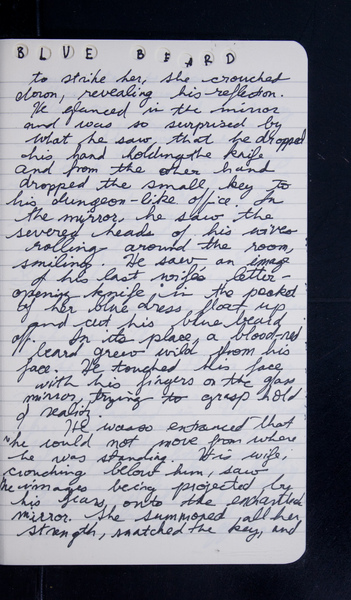 BLUE BEARD
to strike her, she crouched
down, revealing his reflection.
He glanced in the mirror
and was so surprised by
what he saw, that he dropped
his hand holding the knife
and from the other hand
dropped the small key to
his dungeon-like office. In
the mirror, he saw the
severed heads of his wives
rolling around the room,
smiling. He saw an image
of his last wife's letter-
opening knife in the pocket
of her blue dress float up
and cut his blue beard
off. In its place, a blood-red
beard grew wild from his
face. He touched his face
with his fingers on the glass
mirror, trying to grasp hold
of reality.
He was so entranced that
he could not move from where
he was standing. His wife,
crouching below him, saw
the images being projected by
his fears, onto the enchanted
mirror. She summoned all her
strength, snatched the key, and